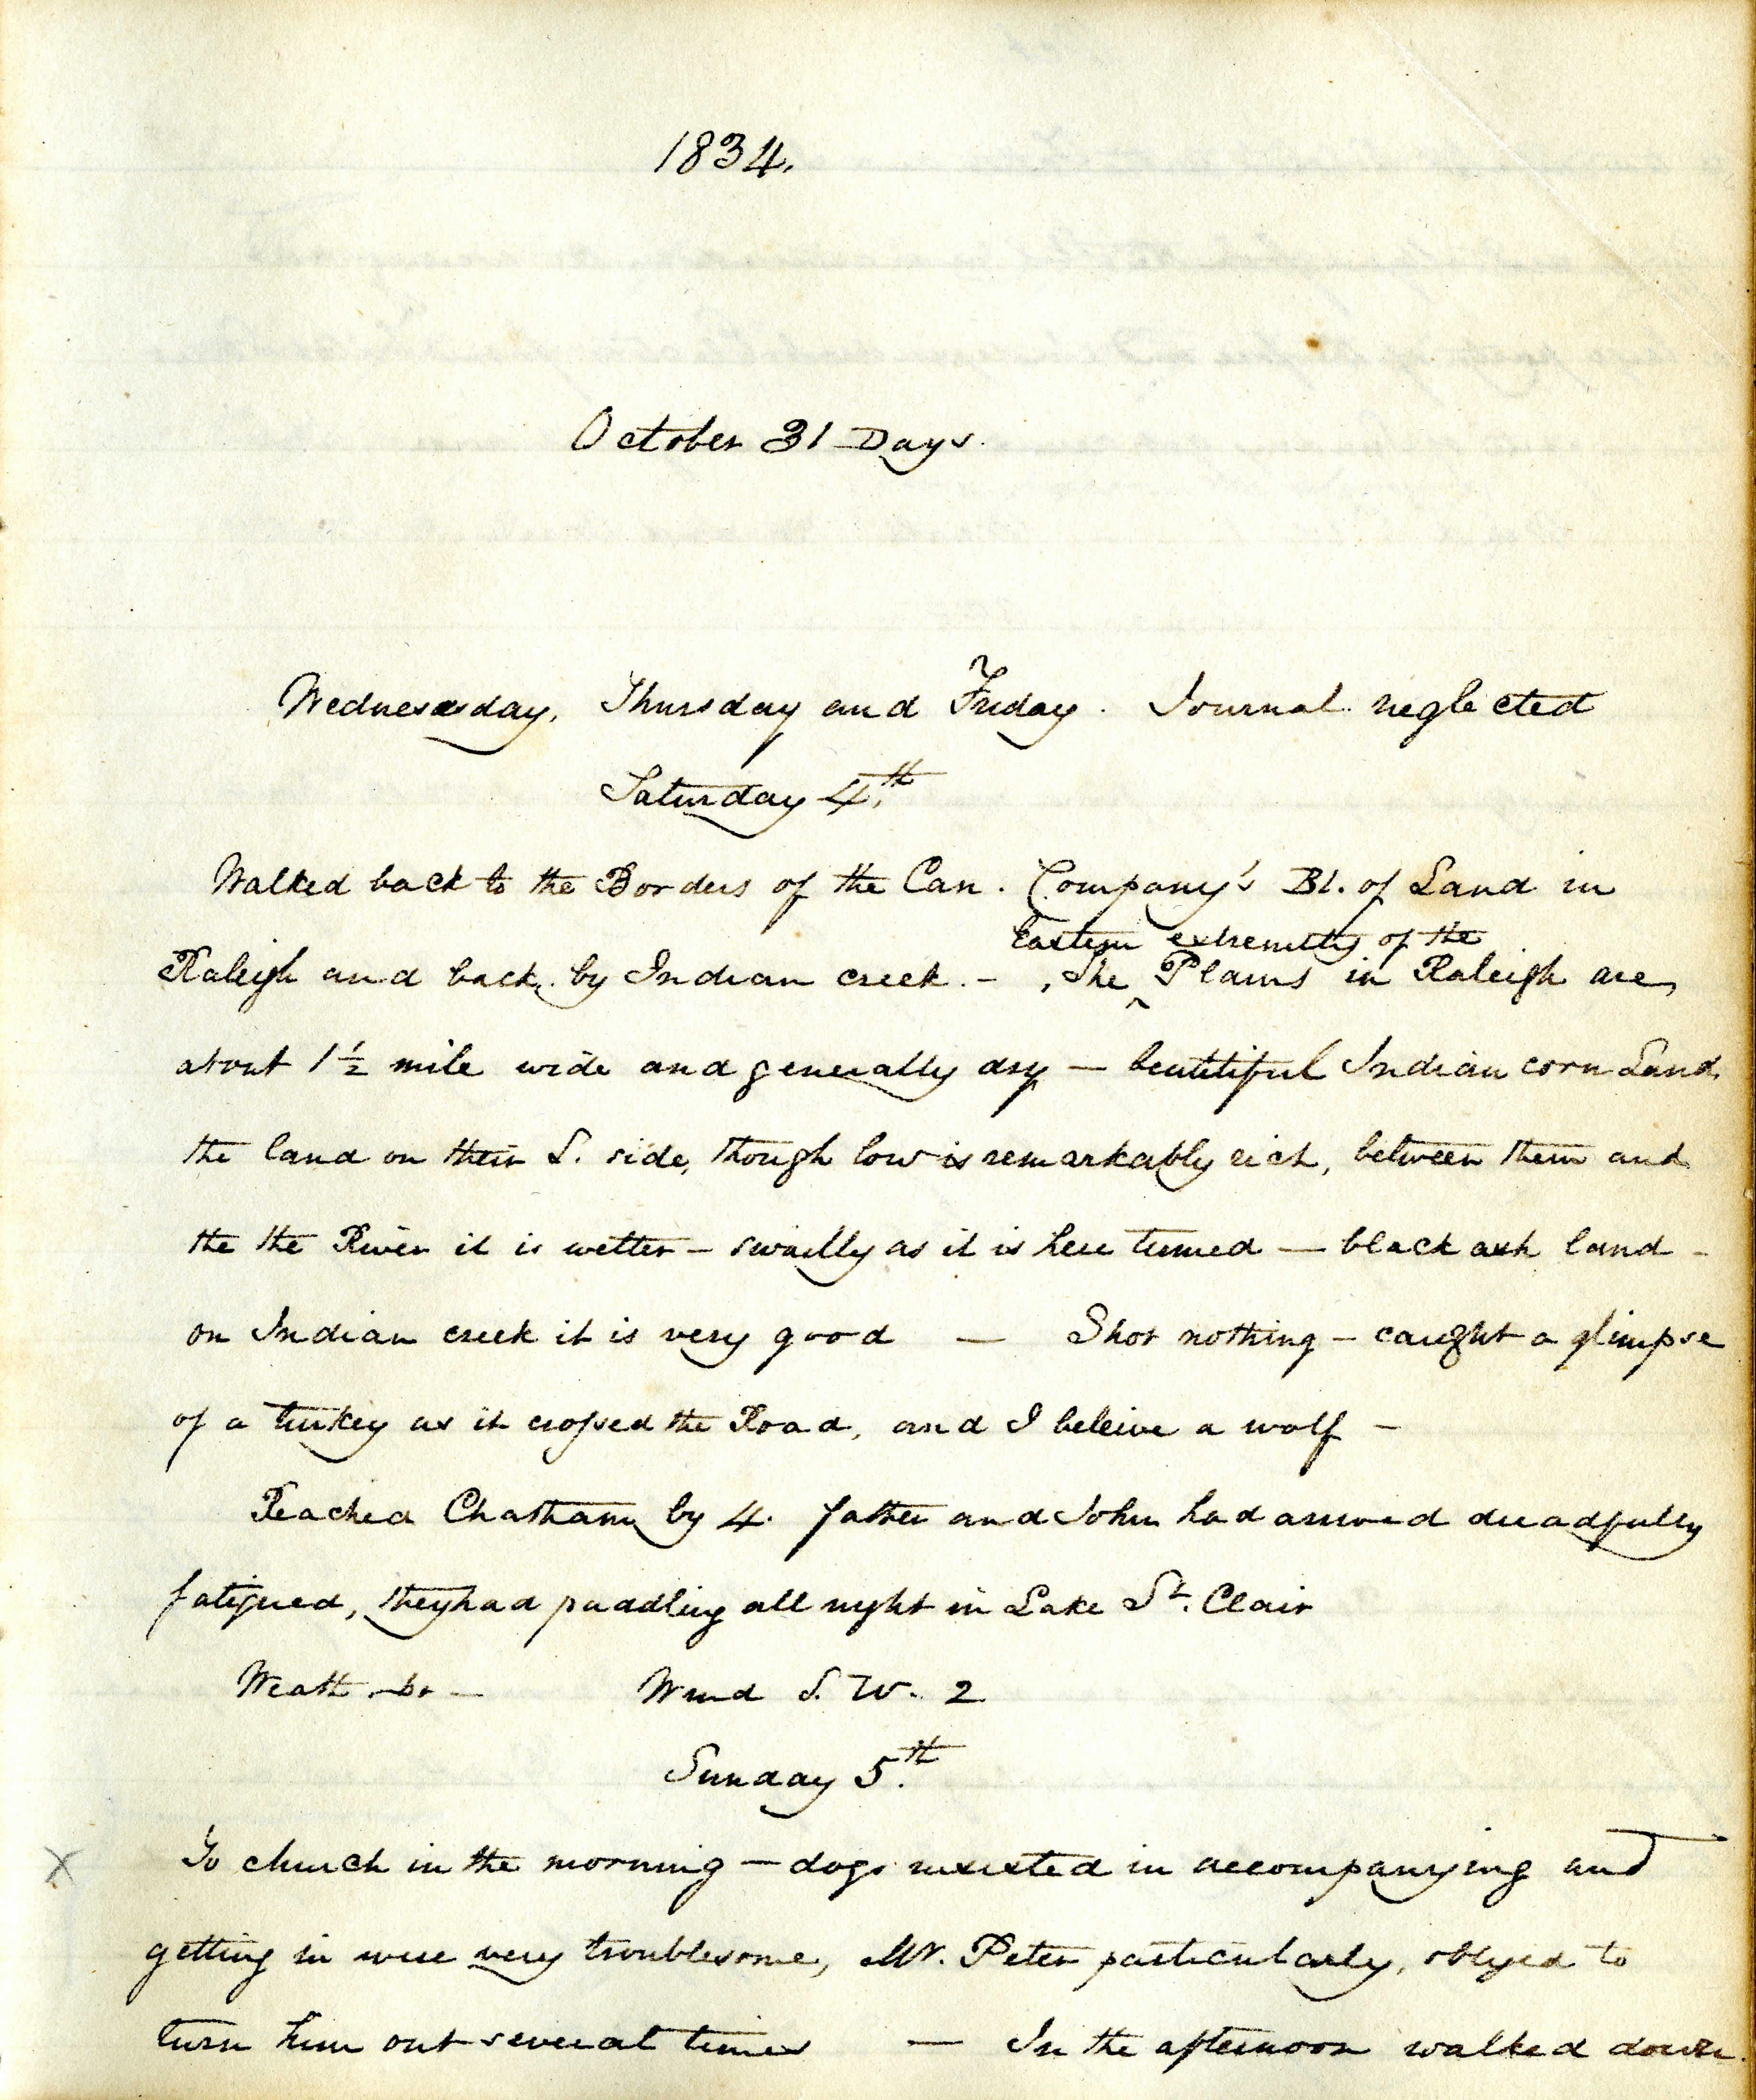 1834.
October 31 Days.
Wednesday, Thursday and Friday. Journal neglected
Saturday 4.th
Walked back to the Borders of the Can. Company's Bl. of Land in
Eastern extremity of the
Raleigh and back by Indian creek. - The ^ Plains in Raleigh are,
about 1 1/2 mile wide and generally dry — beutitiful Indian corn Land,
the land on their S. side, though low is remarkably rich, between them and
the the River it is wetter - swailly as it is here termed — black ash land -
on Indian creek it is very good — Shot nothing - caught a glimpse
of a turkey as it crossed the Road, and I beleive a wolf -
Reached Chatham by 4. father and John had arrived dreadfully
fatigued, they had paddling all night in Lake St. Clair
Weath - Wind S.W. 2
Sunday 5.th
X To church in the morning - dogs insisted in accompanying and
getting in were very troublesome, Mr. Peter particularly, obliged to
turn him out several times — In the afternoon walked down